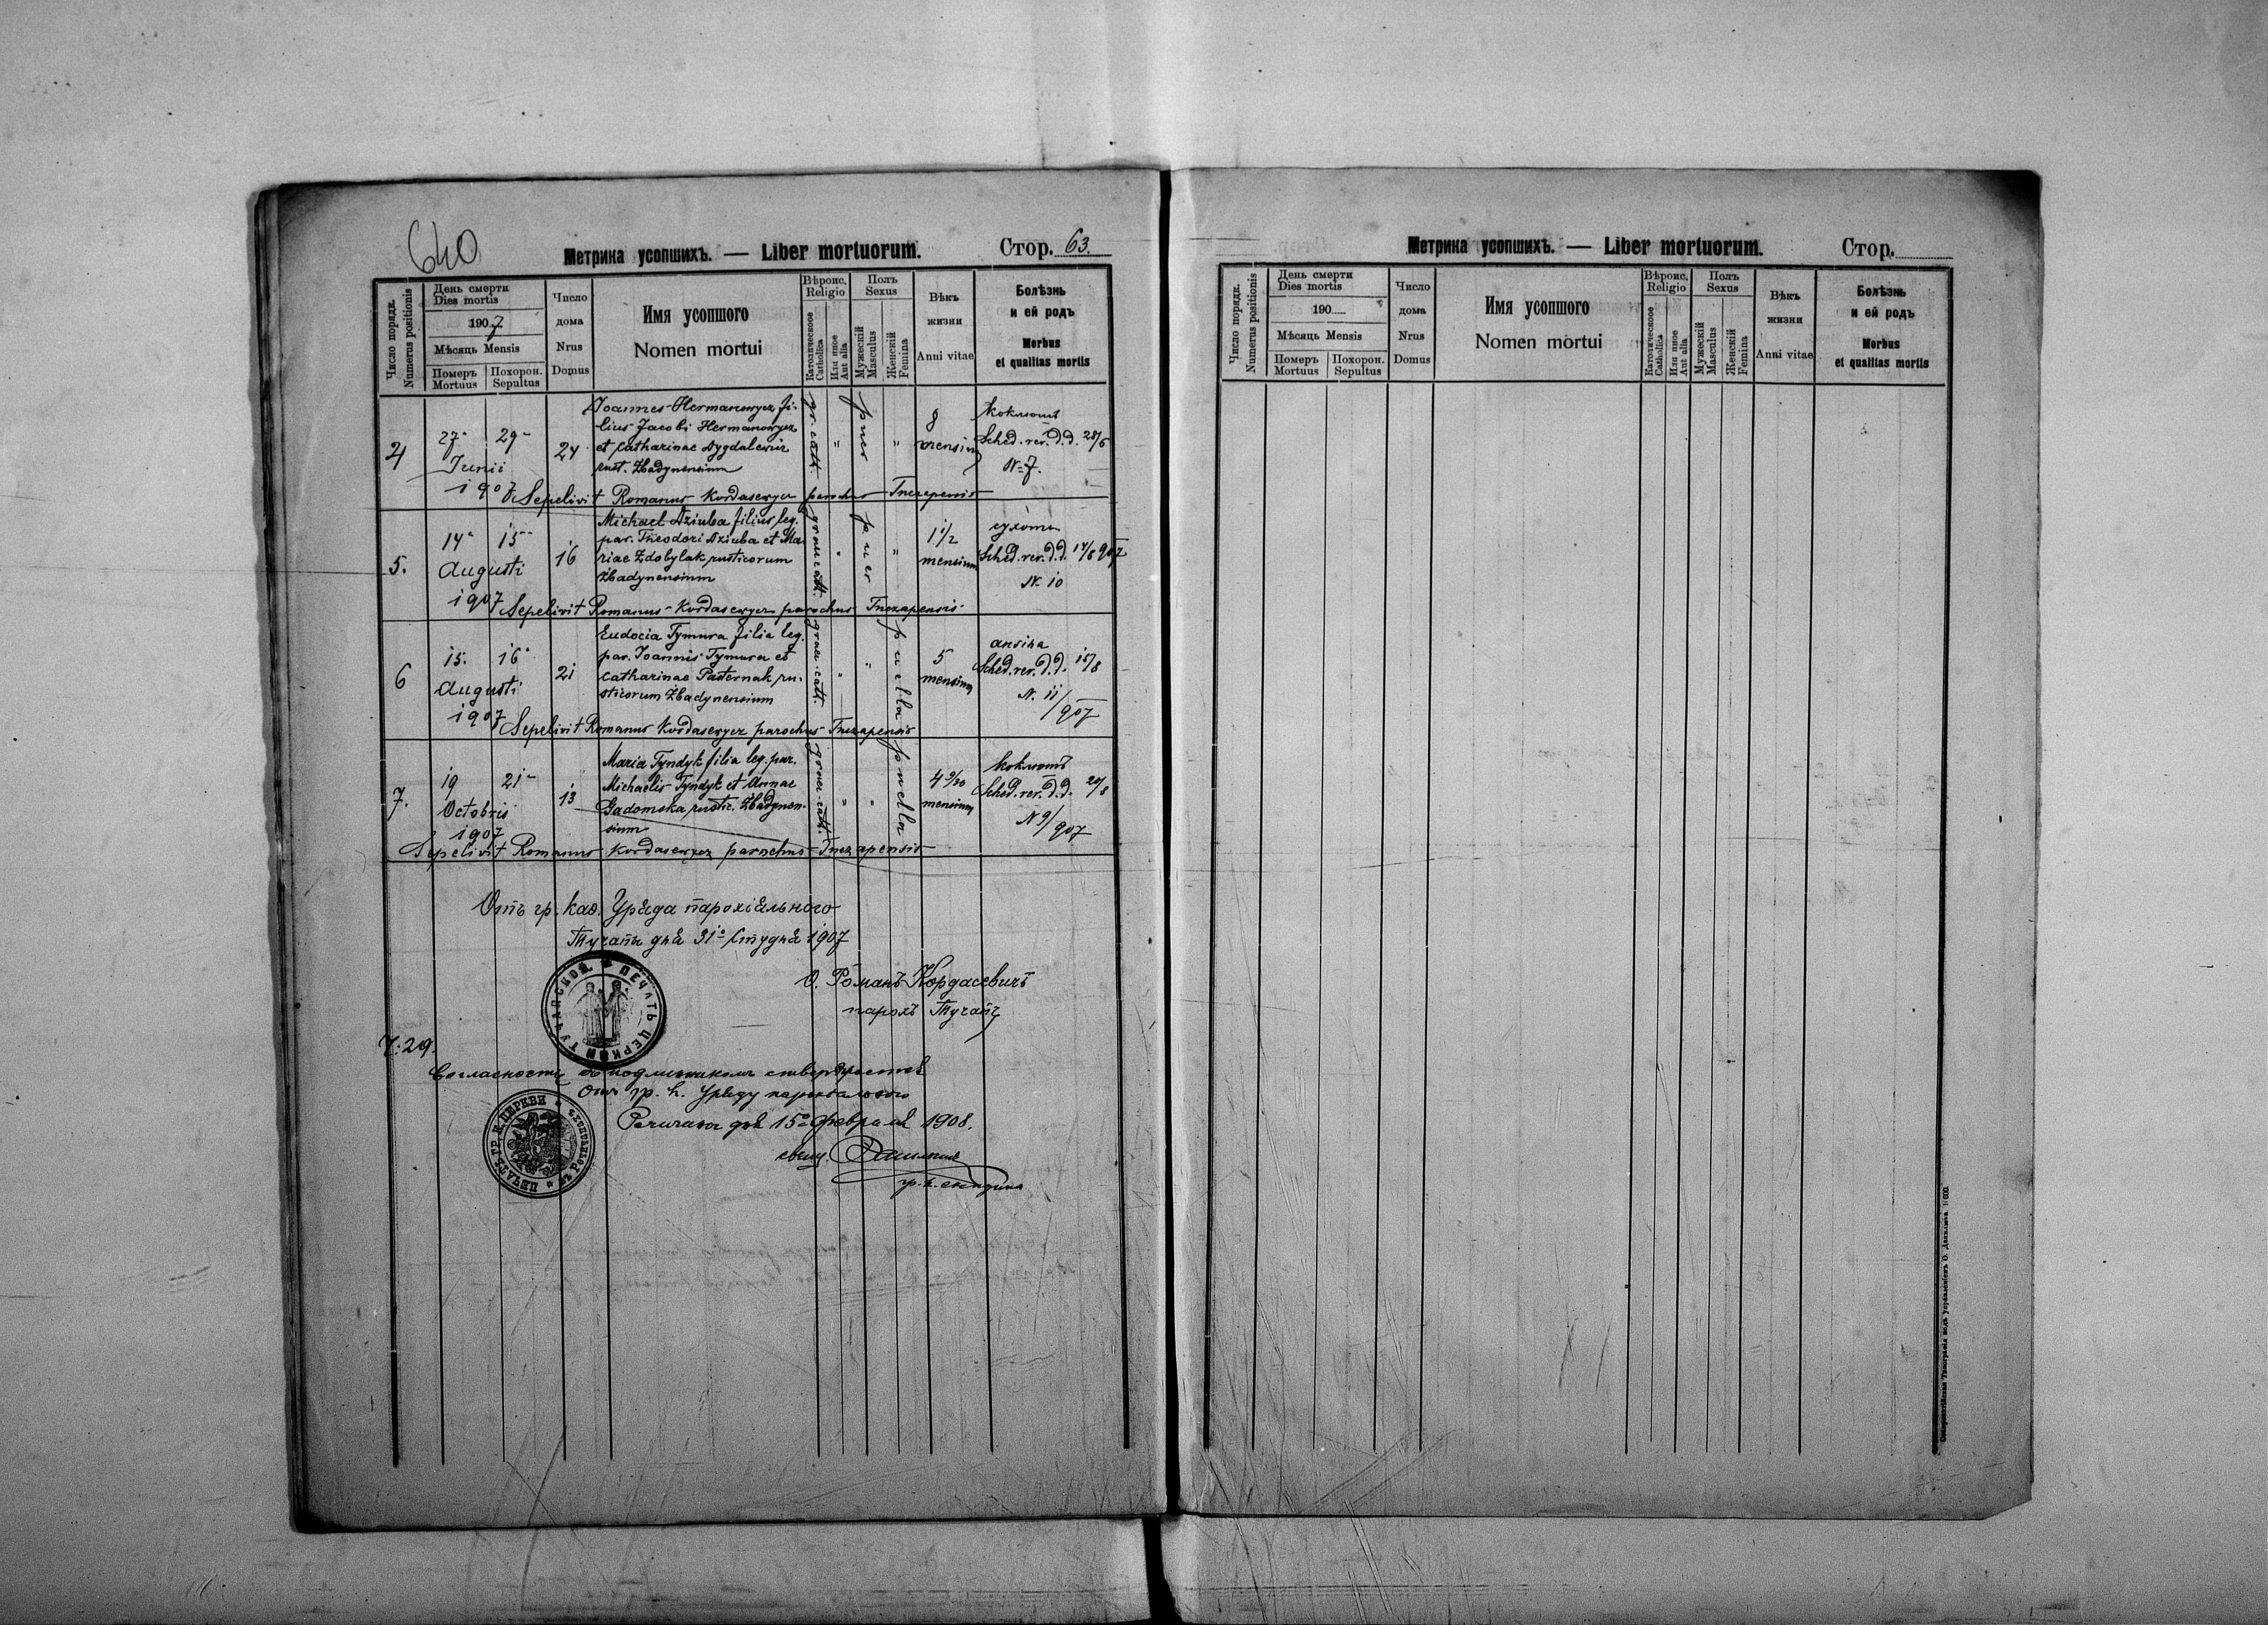 640
Метрика усопшихъ. — Liber mortuorum.
Стор. 63.
Число порядк.
Numerus positionis
День смерти
Dies mortis
1907
Мѣсяць Mensis
Померъ
Mortuus
Похорон.
Sepultus
Число
дома
Nrus
Domus
Имя усопшого
Nomen mortui
Вѣроис.
Religio
Католическоое
Catholica
Или иное
Aut alia
Полъ
Sexus
Мужескій
Masculus
Женскій
Femina
Вѣкъ
жизни
Anni vitae
Болѣзнь
и ей родъ
Morbus
et qualitas mortis
4
27 29
Junii
1907
24
Joannes Hermanowycz fi-
lius Jacobi Hermanowycz
et Catharinae Dygdalewicz
rust. Zbadynensium
gr. cath.
"
puer
"
8
mensium
коклюшъ
Sched. rev. d.d. 28/6
N. 7.
Sepelivit Romanus Kordasewycz parochus Tuczapensis
5.
14 15
Augusti
1907
16
Michael Dziuba filius leg.
par. Theodori Dziuba et Ma-
riae Zdobylak rusticorum
Zbadynensium
graec. cath.
"
puer
"
1 1/2
mensium
сухоты
Sched. rev. d.d. 14/8 907
N. 10
Sepelivit Romanus Kordasewycz parochus Tuczapensis
6
15. 16
Augusti
1907
21
Eudocia Tymura filia leg.
par. Joannis Tymura et
Catharinae Pasternak ru-
sticorum Zbadynensium
graec. cath.
"
"
puella
5
mensium
angina
Sched. rev. d.d. 15/8
N. 11/907
Sepelivit Romanus Kordasewycz parochus Tuczapensis
7.
19 21
Octobris
1907
13
Maria Tyndyk filia leg. par.
Michaelis Tyndyk et Annae
Gadomska rustic. Zbadynen-
sium
graec. cath.
"
"
puella
4 9/30
mensium
коклюшъ
Sched. rev. d.d. 20/8
N 9/907
Sepelivit Romanus Kordasewycz parochus Tuczapensis
Отъ гр. каѳ. Уряда парохіяльного
Тучапы дня 31 Студня 1907
О. Романъ Кордасевичъ
парохъ Тучапъ
ПЕЧАТЬ ЦЕРКВИ ТУЧАПСКОЙ
Ч: 29.
Согласность
Отъ гр. к. Уряду парохіального
дня 15 Февраля 1908.
ПЕЧАТЬ ГР. К. ЦЕРКВИ
свящ.
Метрика усопшихъ. — Liber mortuorum.
Стор.
Число порядк.
Numerus positionis
День смерти
Dies mortis
190
Мѣсяць Mensis
Померъ
Mortuus
Похорон.
Sepultus
Число
дома
Nrus
Domus
Имя усопшого
Nomen mortui
Вѣроис.
Religio
Католическоое
Catholica
Или иное
Aut alia
Полъ
Sexus
Мужескій
Masculus
Женскій
Femina
Вѣкъ
жизни
Anni vitae
Болѣзнь
и ей родъ
Morbus
et qualitas mortis